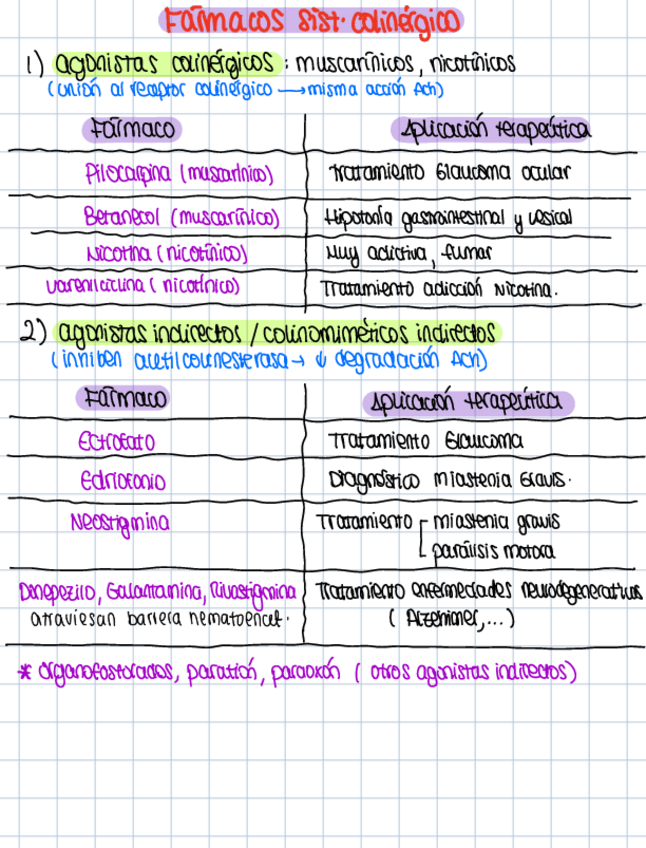 Fármacos sist. colinérgico
1) agonistas colinérgicos: muscarínicos, nicotínicos
(unión al receptor colinérgico → misma acción Ach)
Fármaco Aplicación terapeútica
Pilocarpina (muscarínico) Tratamiento Glaucoma ocular
Betanecol (muscarínico) Hipotonía gastrointestinal y vesical
Nicotina (nicotínico) Muy adictiva, fumar
Vareniclina (nicotínico) Tratamiento adicción Nicotina.
2) agonistas indirectos / colinomiméticos indirectos
(inhiben acetilcolinesterasa → ↓ degradación Ach)
Fármaco Aplicación terapeútica
Ectiofato Tratamiento Glaucoma
Edrofonio Diagnóstico miastenia Gravis.
Neostigmina Tratamiento miastenia gravis
parálisis motora
Donepezilo, Galantamina, Rivastigmina Tratamiento enfermedades neurodegenerativas
atraviesan barrera hematoencef. (Alzehimer,...)
* Organofosforados, paratión, paraoxón (otros agonistas indirectos)